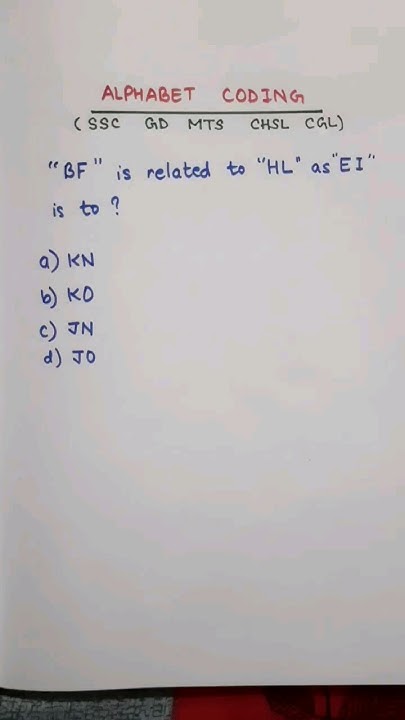 ALPHABET CODING
(SSC GD MTS CHSL CGL)
"BF" is related to "HL" as "EI"
is to ?
a) KN
b) KO
c) JN
d) JO